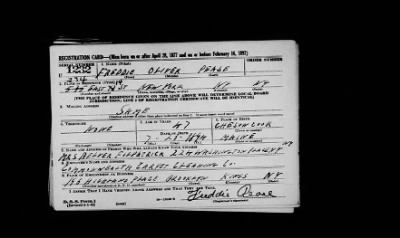 REGISTRATION CARD—(Men born on or after April 28, 1877 and on or before February 16, 1897)
SERIAL NUMBER 1. NAME (Print) ORDER NUMBER
U 1232 FREDDIE OLIVER PEASE
(First) (Middle) (Last)
234
EAST ST NEW YORK NY NY
[THE PLACE OF RESIDENCE GIVEN ON THE LINE ABOVE WILL DETERMINE LOCAL BOARD
JURISDICTION; LINE 2 OF REGISTRATION CERTIFICATE WILL BE IDENTICAL]
3. MAILING ADDRESS
SAME
4. TELEPHONE 5. AGE IN YEARS 6. PLACE OF BIRTH
NONE 47
DATE OF BIRTH
MAINE
7. NAME AND ADDRESS OF PERSON WHO WILL ALWAYS KNOW YOUR ADDRESS
MRS FITZPATRICK WASHINGTON
8. EMPLOYER'S NAME AND ADDRESS
COMMONWEALTH CARPET CLEANING CO.
9. PLACE OF EMPLOYMENT OR BUSINESS
PLACE BROOKLYN KINGS N.Y.
I AFFIRM THAT I HAVE VERIFIED ABOVE ANSWERS AND THAT THEY ARE TRUE.
D. S. S. Form 1
Freddie Pease